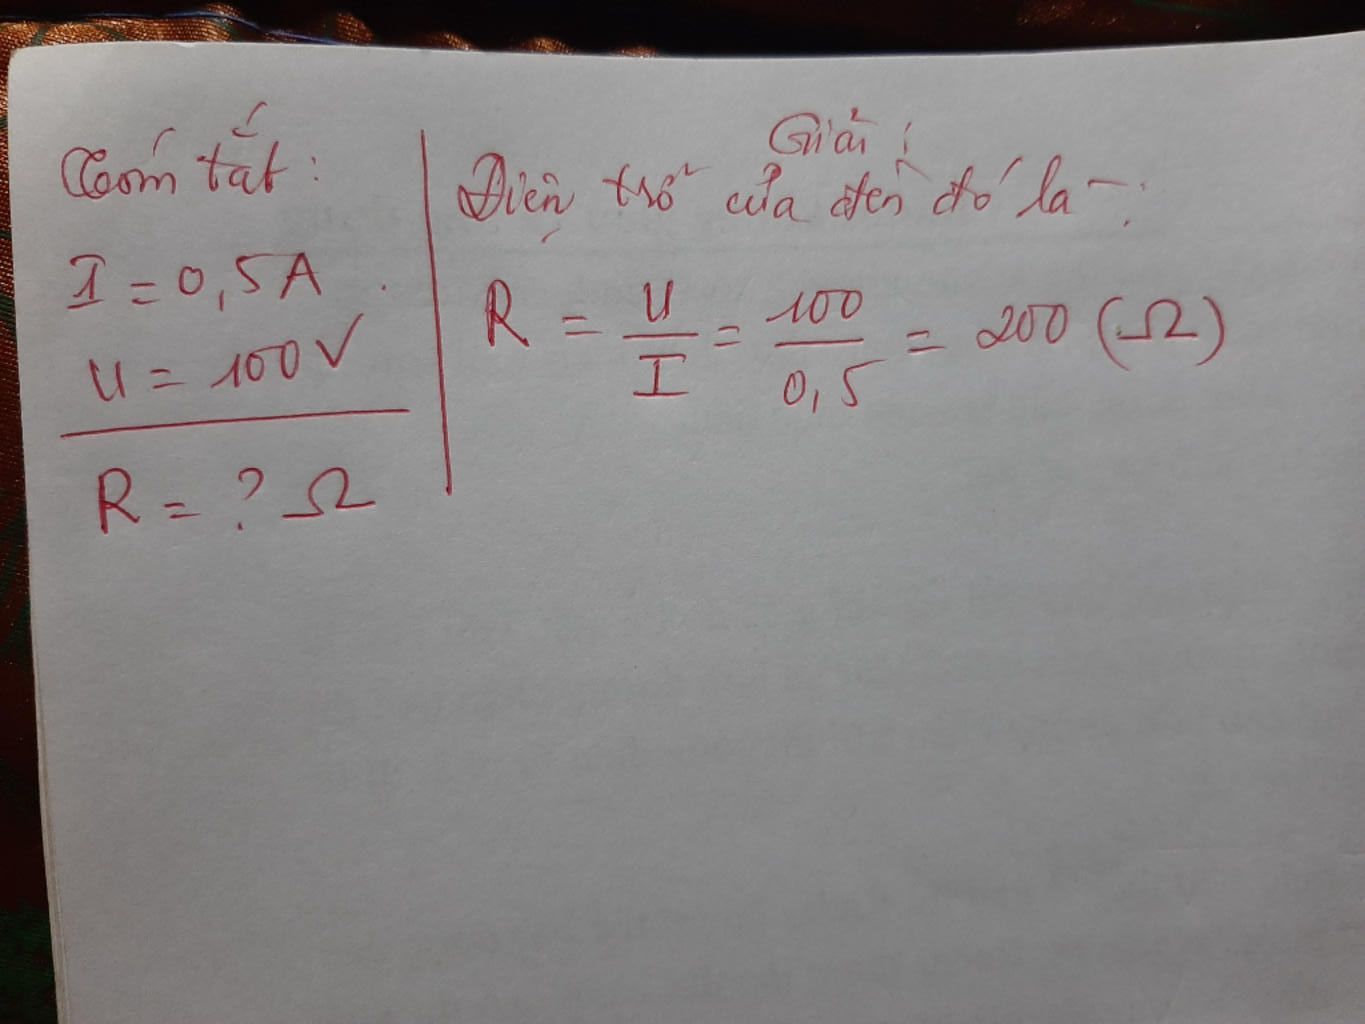 Tóm tắt:
I = 0,5A.
U = 100V
R = ? Ω
Giải:
Điện trở của đèn đó là:
R = U/I = 100/0,5 = 200 (Ω)